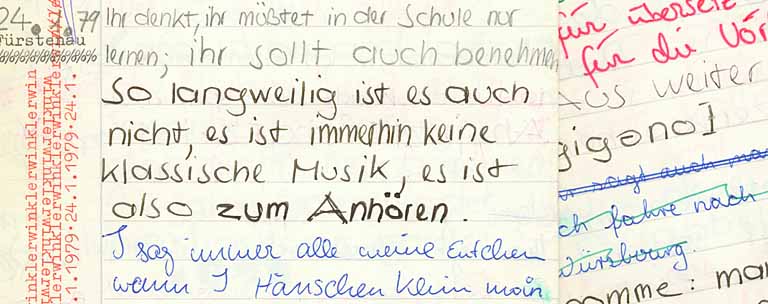 24. 1. 79
Fürstenau
%%%%%%%%%
Ihr denkt, ihr müßtet in der Schule nur
lernen; ihr sollt auch benehmen
So langweilig ist es auch
nicht, es ist immerhin keine
klassische Musik, es ist
also zum Anhören.
I sag immer alle meine Entchen
wenn I Hänschen klein moin
winklerwinklerwin
1.1979·24.1.1979·24.1.
für übersetz
für die Vör
Aus weiter
gigono]
sagt auch
ch fahre nach
Würsbourg.
omme: mar